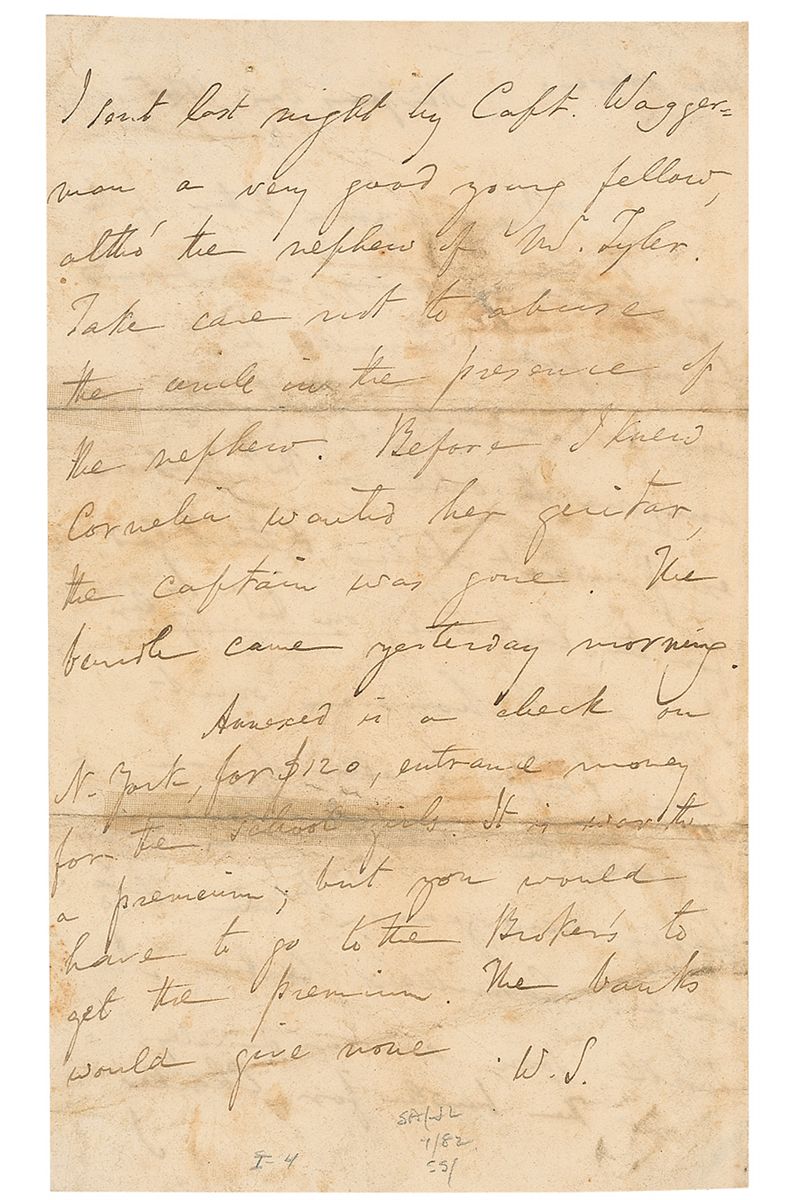 I sent last night by Capt. Wagger=
man a very good young fellow,
altho' the nephew of Mr. Tyler.
Take care not to abuse
the uncle in the presence of
the nephew. Before I knew
Cornelia wanted her guitar,
the captain was gone. The
bundle came yesterday morning.
Annexed is a check on
N. York, for $120, entrance money
for the school girls. It is worth
a premium; but you would
have to go to the Broker's to
get the premium. The banks
would give none
W. S.
I-4
1/82